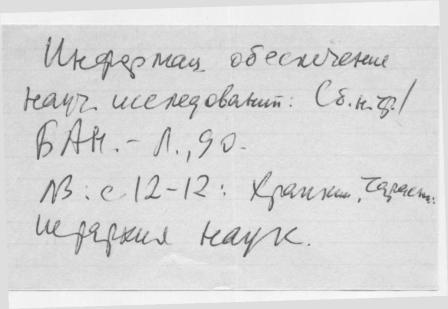 Информац. обеспечение
науч. исследований: Сб. н. тр. /
БАН. - Л., 90.
NB: с. 12-12:
иерархия наук.